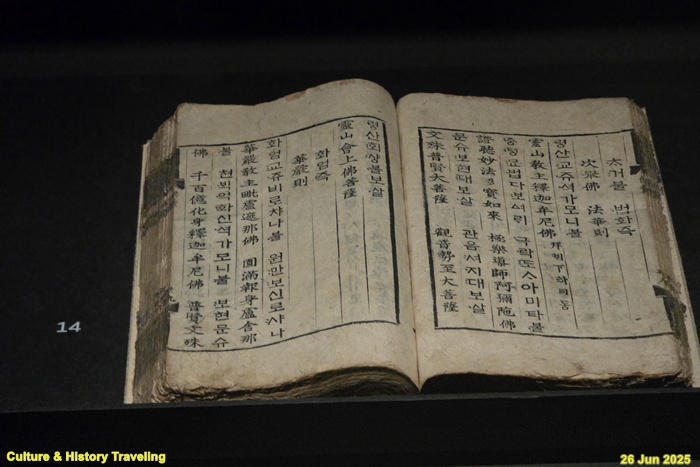 거불 법화즉
次擧佛 法華則
령산교쥬셕가모니불
靈山敎主釋迦牟尼佛
증텽묘법다보여ᄅᆡ 극락도ᄉᆞ아미타불
證聽妙法多寶如來 極樂導師阿彌陀佛
문슈보현대보살 관음셔지대보살
文殊普賢大菩薩 觀音勢至大菩薩
령산회샹불보살
靈山會上佛菩薩
화엄즉
華嚴則
화엄교쥬비로쟈나불 원만보신로샤나
華嚴敎主毗盧遮那佛 圓滿報身盧舍那
불 쳔ᄇᆡᆨ억화신셕가모니불 보현문슈
佛 千百億化身釋迦牟尼佛 普賢文殊
14
Culture & History Traveling
26 Jun 2025